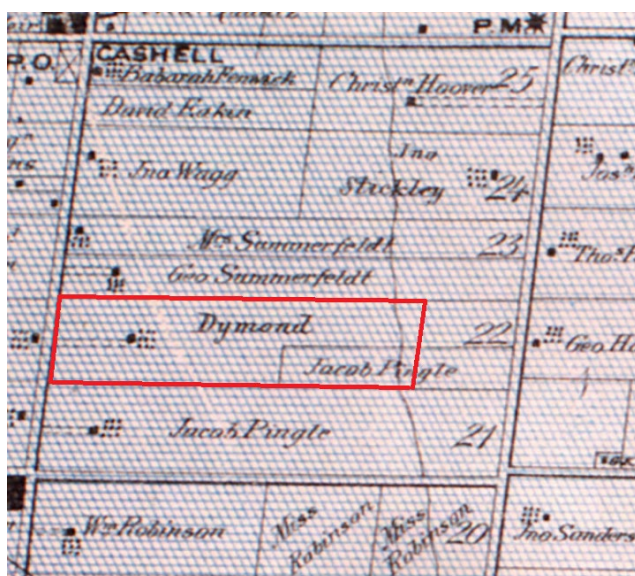 P.M
P.O.
CASHELL
Christn Hoover 25
David Eakin
Jno Wagg
Jno
Stickley 24
Mrs Summerfeldt 23
Geo Summerfeldt
Thos
Dymond 22
Geo
Jacob Pingle
Jacob Pingle 21
Wm Robinson
Miss
Robinson
Miss
Robinson 20
Jno Sanders